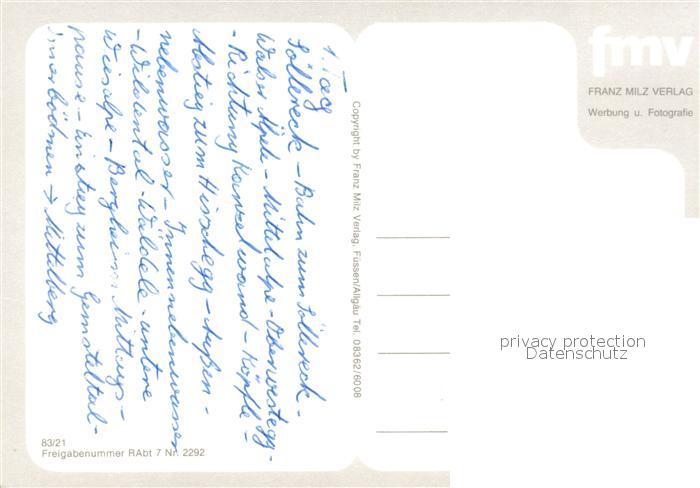 1. Tag
Söllereck - Bahn zum Söllereck -
Walser Alpe - Mittelalpe - Oberwestegg -
- Richtung Kanzelwand - Köpfle -
Abstieg zum Hirschegg - Außen -
nebenwasser - Innernebenwasser
- Wildental - Waldele - untere
Wiesalpe - Bergheim Mittags -
pause - Einstieg zum Gemsteltal -
Innerbödmen → Mittelberg
Copyright by Franz Milz Verlag, Füssen/Allgäu Tel. 08362/6008
83/21
Freigabenummer RAbt 7 Nr. 2292
fmv
FRANZ MILZ VERLAG
Werbung u. Fotografie
privacy protection
Datenschutz